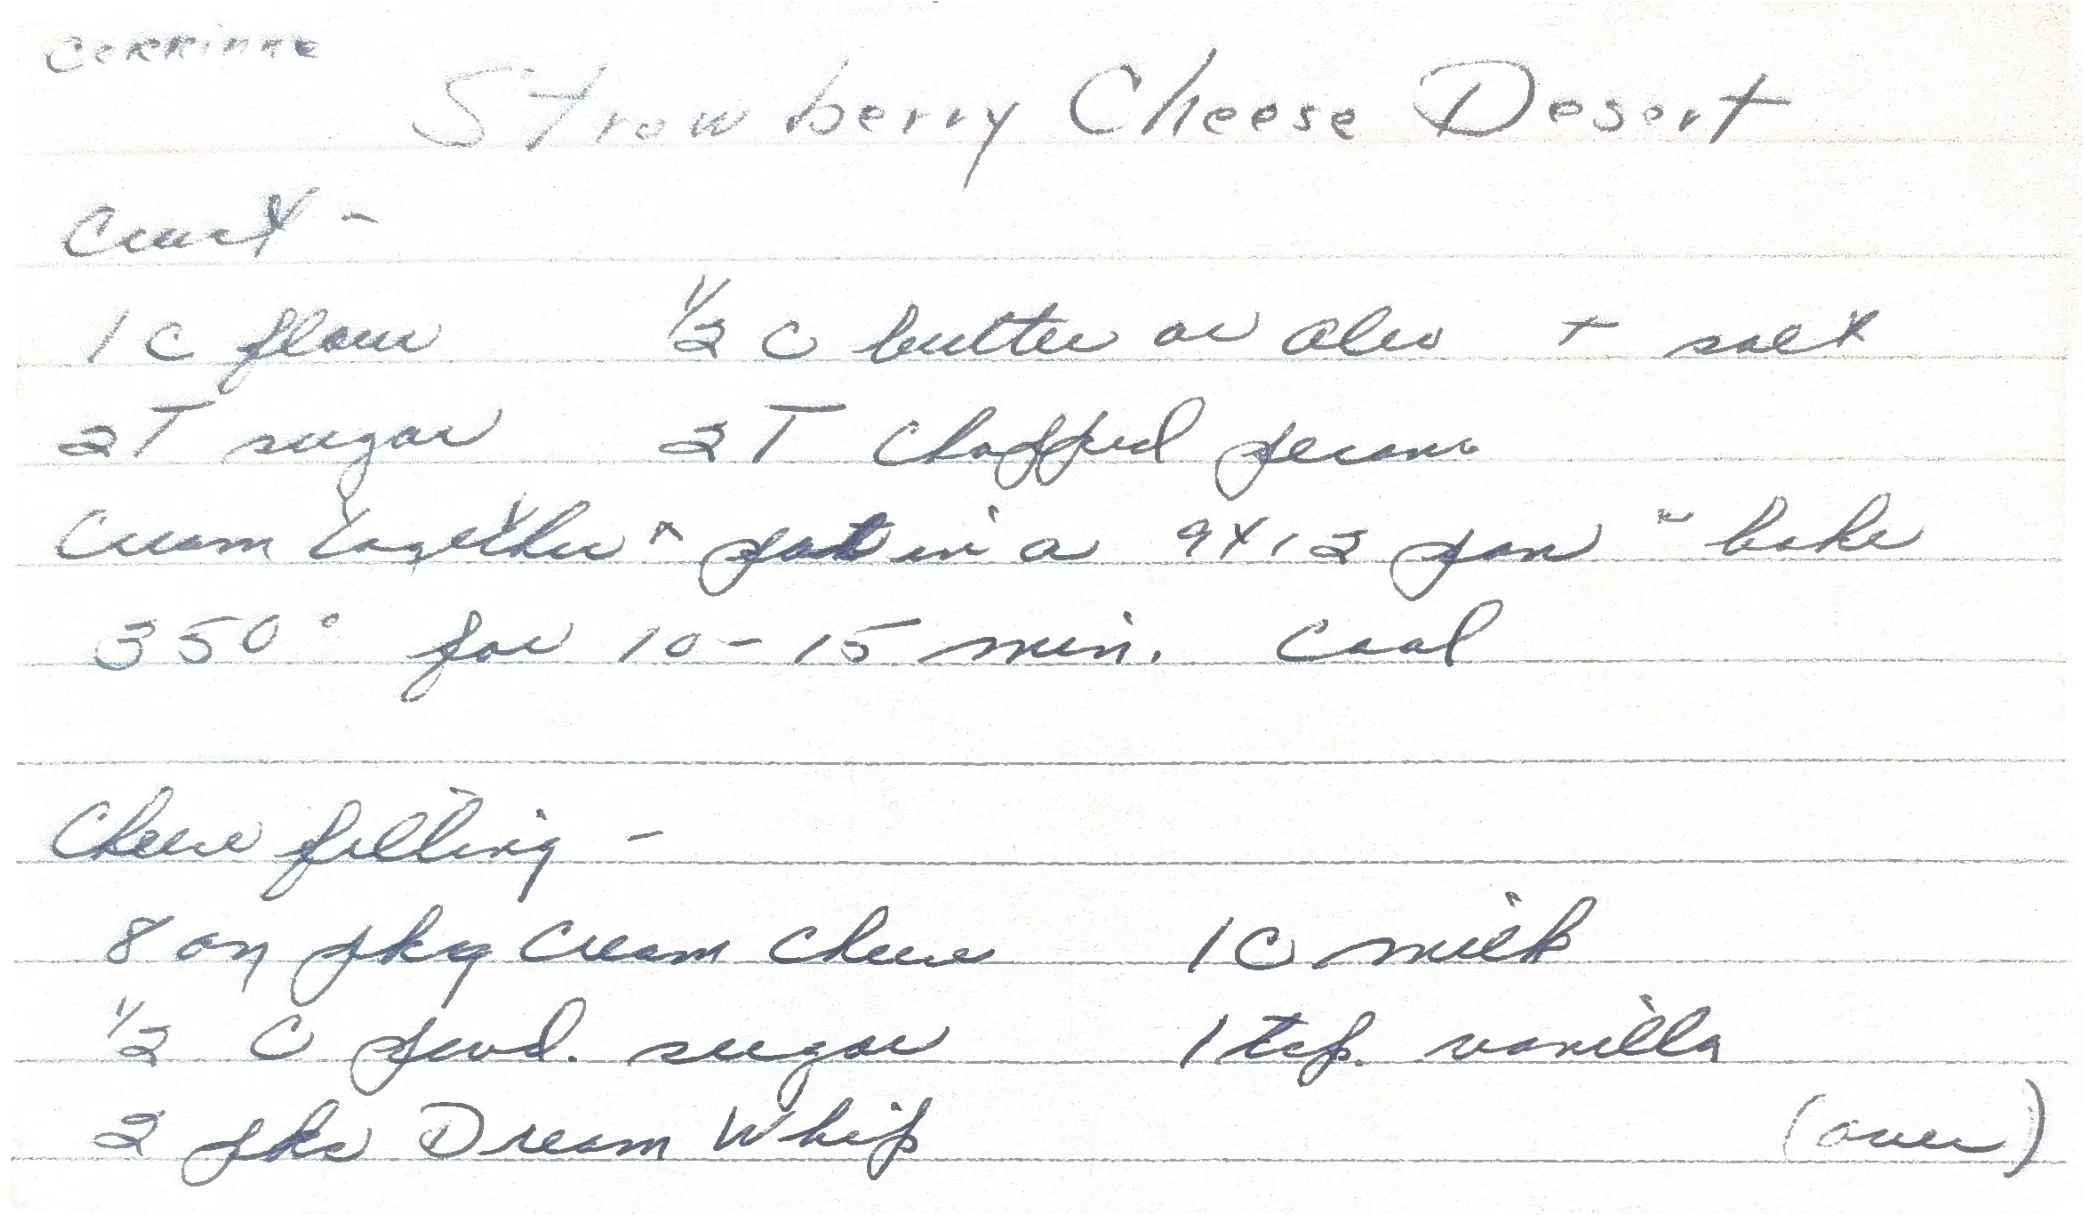 CORRINNE
Strawberry Cheese Desert
Crust -
1 c flour 1/2 c butter or oleo + salt
2 T sugar 2 T Chopped pecans
Cream together " put in a 9x12 pan " bake
350° for 10-15 min. Cool
Cheese filling -
8 oz pkg Cream Cheese 1 C milk
1/2 C powd. sugar 1 tsp. vanilla
2 pks Dream Whip (over)